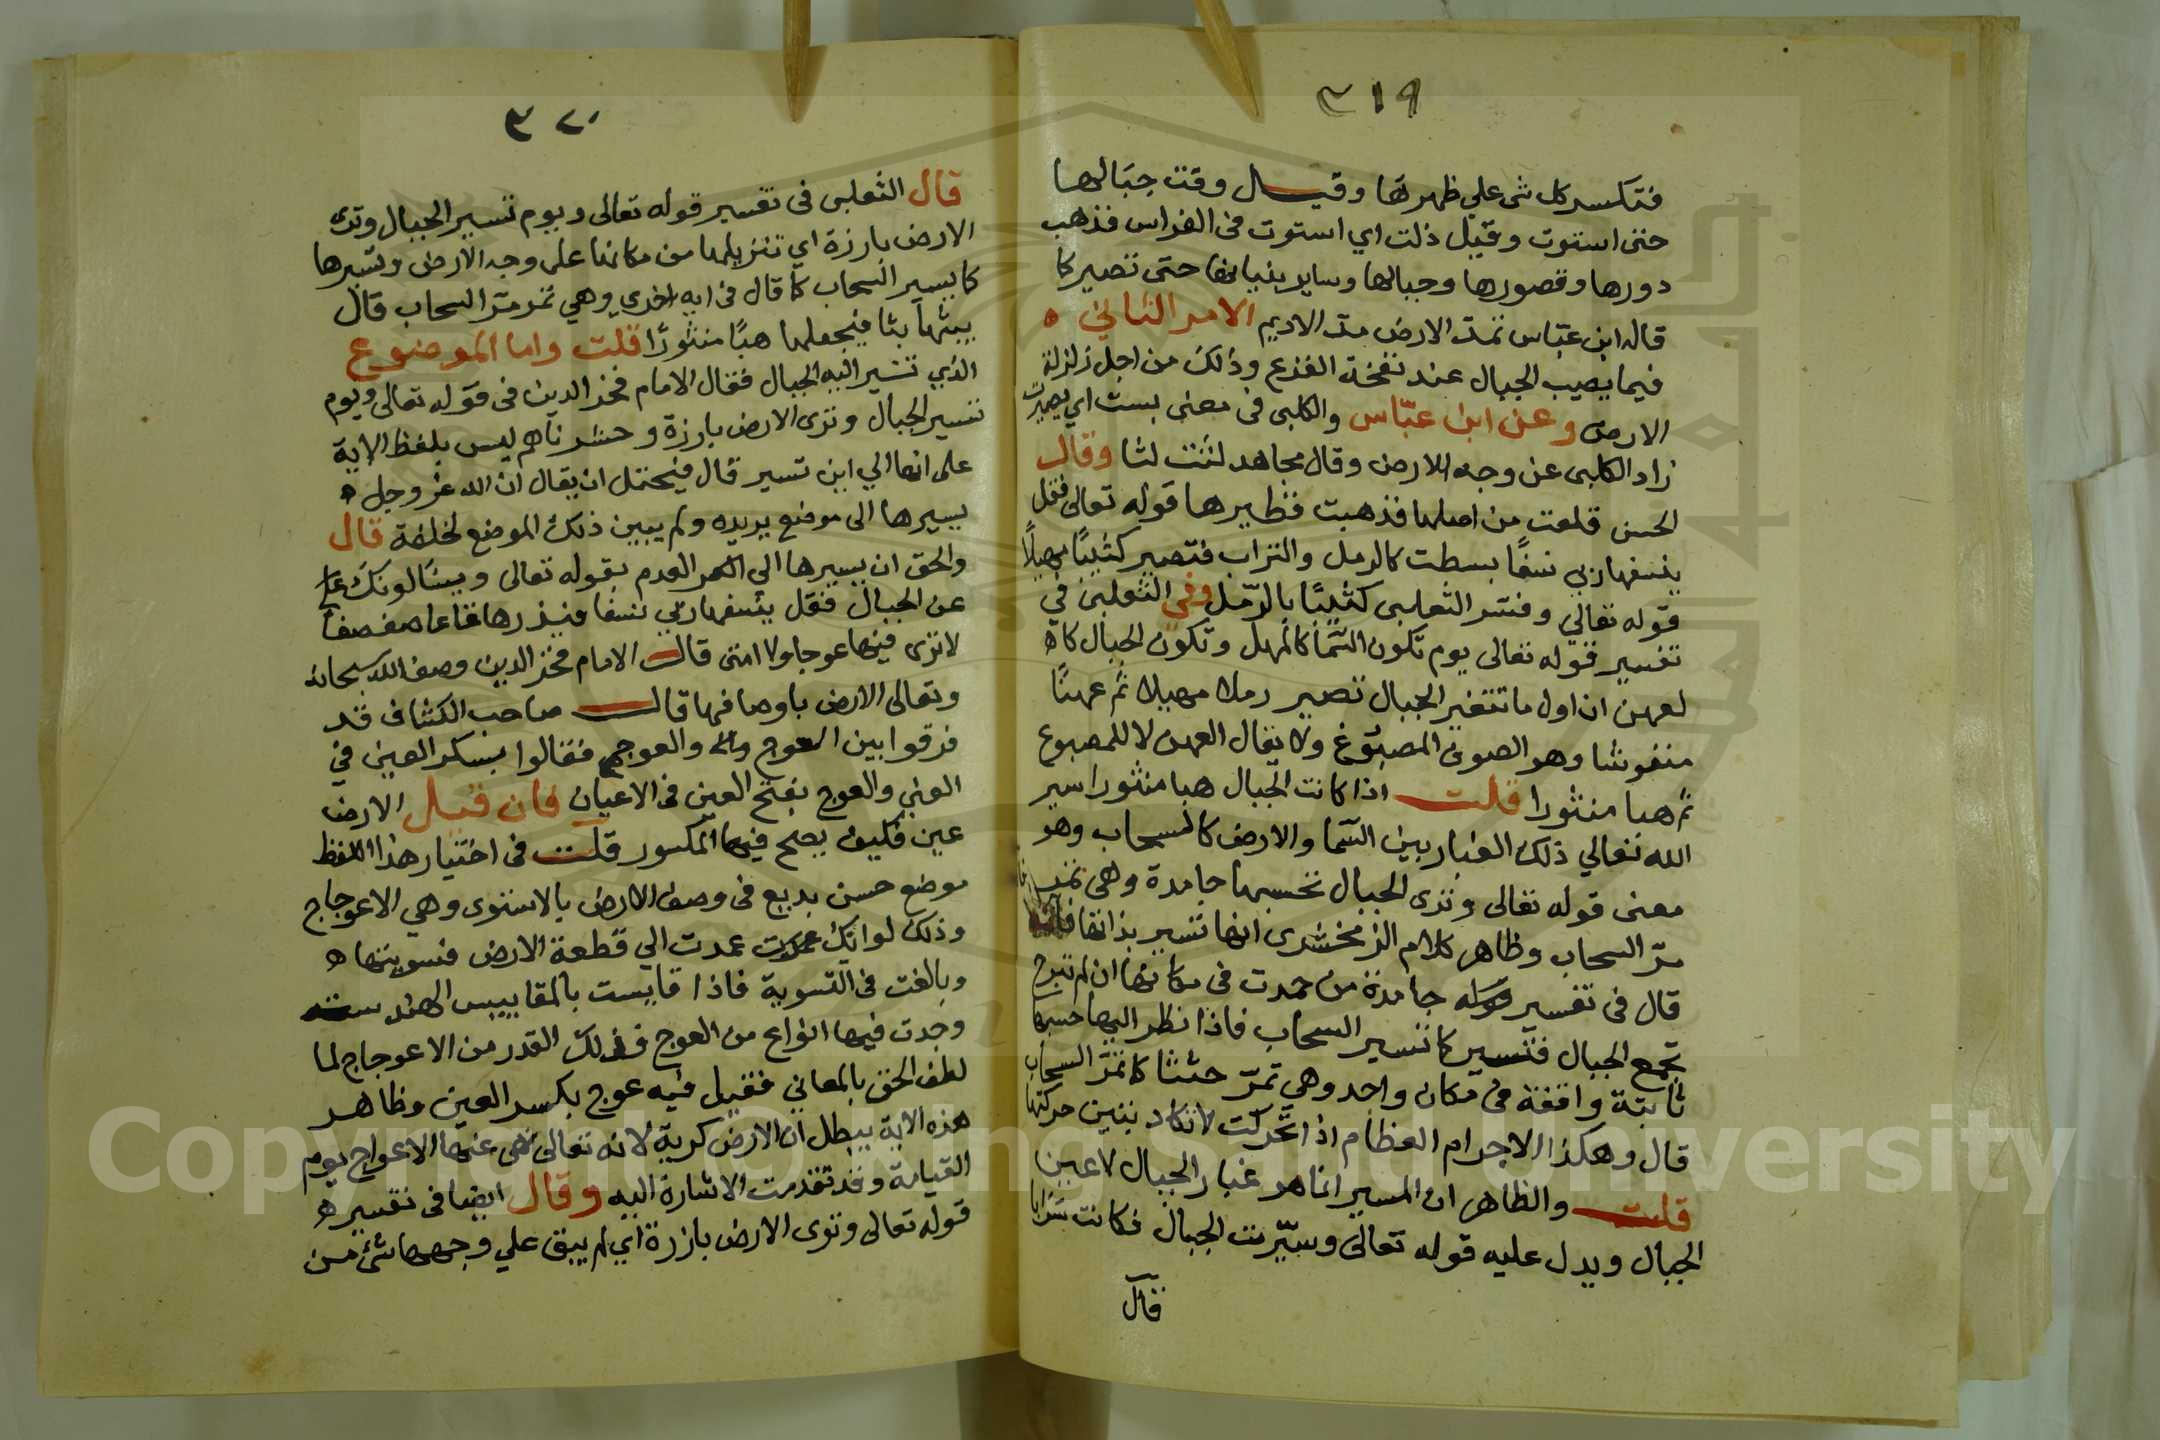 ٣١٩
فتكسر كل شى علي ظهرها وقيل وقت جبالها
حتى استوت وقيل ذلت اي استوت فى الفراس فذهب
دورها وقصورها وجبالها وساير بنيانها حتى تصير كا
قاله ابن عباس تمد الارض مد الاديم الامر الثاني ه
فيما يصيب الجبال عند نفخة الفزع وذلك من اجل زلزلة
الارض وعن ابن عباس والكلبى فى معنى بست اي
زاد الكلبى عن وجه الارض وقال مجاهد لتت لتا وقال
الحسن قلعت من اصلها فذهبت فنظيرها قوله تعالى فقل
ينسفها ربي نسفًا بسطت كالرمل والتراب فتصير كثيبًا مهيلًا
قوله تعالي وفسر الثعلبى كثيبًا بالرمل وفي الثعلبى في
تفسير قوله تعالى يوم تكون السما كالمهل وتكون الجبال كا ه
لعهن ان اول ما تتغير الجبال تصير رملا مهيلا ثم عهنًا
منفوشا وهو الصوف المصبوغ ولا يقال العهن لا للمصبوع
ثم هبا منثورا قلت اذا كانت الجبال هبا منثورا سير
الله تعالي ذلك الغبار بين السما والارض كالسحاب وهو
معنى قوله تعالى وترى الجبال تحسبها جامدة وهى تمر
مر السحاب وظاهر كلام الزمخشرى انها تسير بذاتها فانه
قال فى تفسير قوله جامدة من جمدت فى مكانها ان لم تبرح
تجمع الجبال فتسير كا تسير السحاب فاذا نظر اليها حسبها
ثابتة واقفة فى مكان واحد وهي تمر حثثا كا تمر السحاب
قال وهكذا الاجرام العظام اذا تحركت لا تكاد تبين حركتها
قلت والظاهر ان المسير انما هو غبار الجبال لا عين
الجبال ويدل عليه قوله تعالى وسيرت الجبال فكانت سرابا
قال
٣٢٠
قال الثعلبى فى تفسير قوله تعالى ويوم تسير الجبال وترى
الارض بارزة اي تنزيلها من مكانها على وجه الارض وتسيرها
كا يسير السحاب كا قال فى ايه اخري وهي تمر مر السحاب قال
يبثها بثا فيجعلها هبًا منثورًا قلت واما الموضوع
الذي تسير اليه الجبال فقال الامام فخر الدين فى قوله تعالى ويوم
تسير الجبال وترى الارض بارزة وحشرناهم ليس بلفظ الاية
على انها الي اين تسير قال فيحتمل ان يقال ان الله عز وجل ه
يسيرها الى موضع يريده ولم يبين ذلك الموضع لخلقه قال
والحق ان يسيرها الي العدم بقوله تعالى ويسالونك
عن الجبال فقل ينسفها ربي نسفا فيذرها قاعا صفصفا
لا ترى فيها عوجا ولا امتى قال الامام فخر الدين وصف الله سبحانه
وتعالى الارض باوصافها قال صاحب الكشاف قد
فرقوا بين العوج والعوج فقالوا بسكر العين في
العني والعوج بفتح العين فى الاعيان فان قيل الارض
عين فكيف يصح فيها المكسور قلت فى اختيار هذا اللفظ
موضع حسن بديع فى وصف الارض بالاستوى وهي الاعوجاج
وذلك لو انك عمدت الي قطعة الارض فسويتها ه
وبالغت فى التسوية فاذا قايست بالمقاييس الهندسته
وجدت فيها انواع من العوج فذلك القدر من الاعوجاج لما
لطف الحق بالمعاني فقيل فيه عوج بكسر العين وظاهر
هذه الاية يبطل ان الارض كرية لانه تعالى نفى عنها الاعواج يوم
القيامة وقد تقدمت الاشارة اليه وقال ايضا فى تفسير ه
قوله تعالى وترى الارض بارزة اي لم يبق علي وجهها شئ من